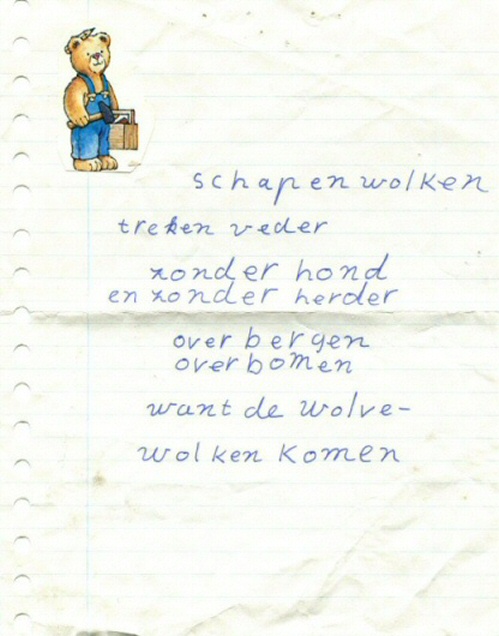 schapenwolken
treken veder
zonder hond
en zonder herder
over bergen
over bomen
want de wolve-
wolken komen